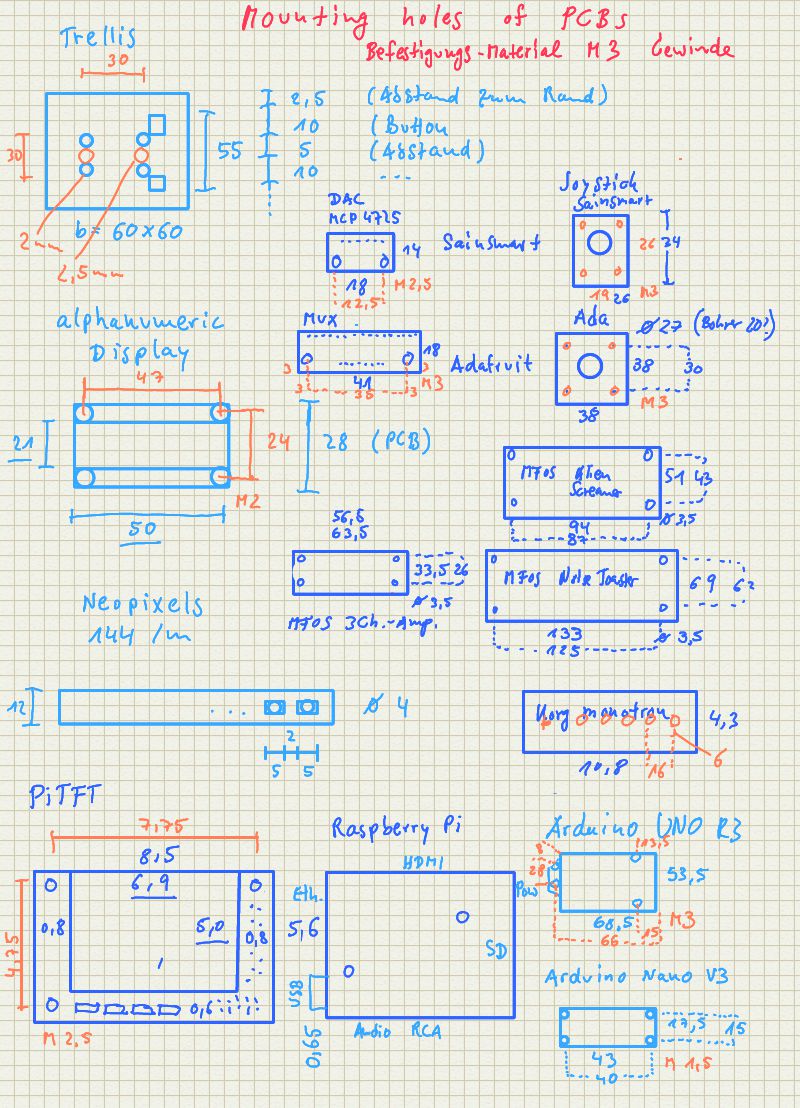 Mounting holes of PCBs
Befestigungs-Material M3 Gewinde
Trellis
30
30
55
2,5 (Abstand zum Rand)
10 (Button
5 (Abstand)
10 ---
b = 60x60
2mm
2,5mm
DAC
MCP 4725
14
18
12,5
M2,5
Sainsmart
Joystick
Sainsmart
26 34
19 26 M3
alphanumeric
Display
47
21
24
28 (PCB)
M2
50
Mux
18
3 3
41
3 35 3
M3
Adafruit
Ada
Ø 27
38 30
M3
38
MFOS Alien
Screamer
51 43
Ø 3,5
94
87
56,5
63,5
33,5 26
Ø 3,5
MFOS 3Ch.-Amp.
MFOS Noise Toaster
69 62
133
125
Ø 3,5
Neopixels
144 /m
12
...
Ø 4
2
5 5
Korg monotron
4,3
10,8
16
6
PiTFT
7,75
8,5
6,9
5,0
0,8
0,8
4,75
0,6
M 2,5
Raspberry Pi
HDMI
Eth.
5,6
SD
USB
0,65
Audio RCA
Arduino UNO R3
8
28
13,5
Pow
53,5
68,5
15
66
M3
Arduino Nano V3
17,5 15
43
40
M 1,5